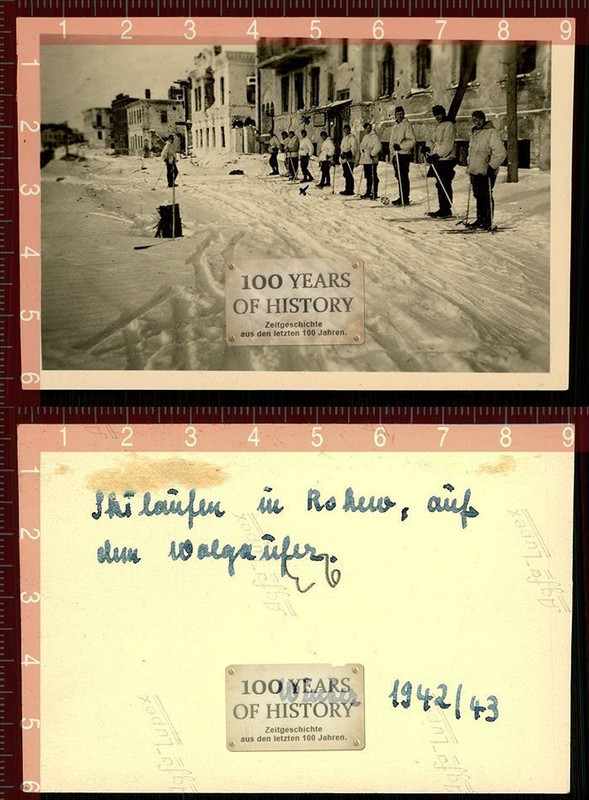 1 2 3 4 5 6 7 8 9
1
2
3
4
5
6
100 YEARS
OF HISTORY
Zeitgeschichte
aus den letzten 100 Jahren.
1 2 3 4 5 6 7 8 9
1
2
3
4
5
6
Skilaufen in Rshew, auf
dem Wolgaufer.
Agfa-Lupex
Agfa-Lupex
100 YEARS
OF HISTORY
Zeitgeschichte
aus den letzten 100 Jahren.
Winter 1942/43
Agfa-Lupex
Agfa-Lupex